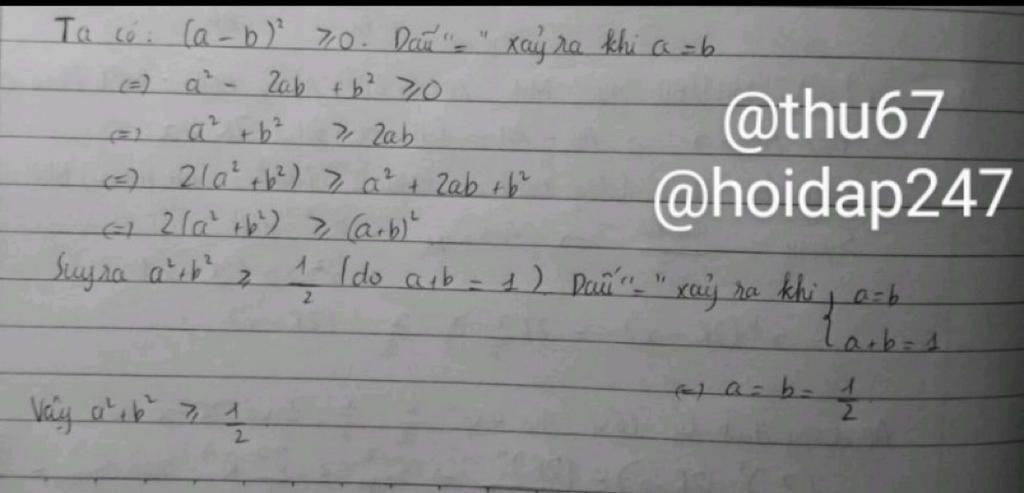 Ta có: (a - b)² ≥ 0. Dấu "=" xảy ra khi a = b
(=) a² - 2ab + b² ≥ 0
(=) a² + b² ≥ 2ab
(=) 2(a² + b²) ≥ a² + 2ab + b²
(=) 2(a² + b²) ≥ (a+b)²
Suy ra a² + b² ≥ 1/2 (do a+b = 1). Dấu "=" xảy ra khi { a = b
a + b = 1
(=) a = b = 1/2
Vậy a² + b² ≥ 1/2
@thu67
@hoidap247